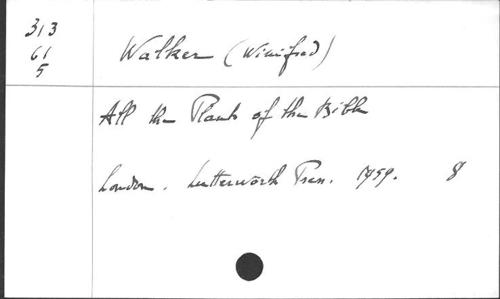 313
61
5
Walker (Winifred)
All the Plants of the Bible
London. Lutterworth Press. 1959. 8